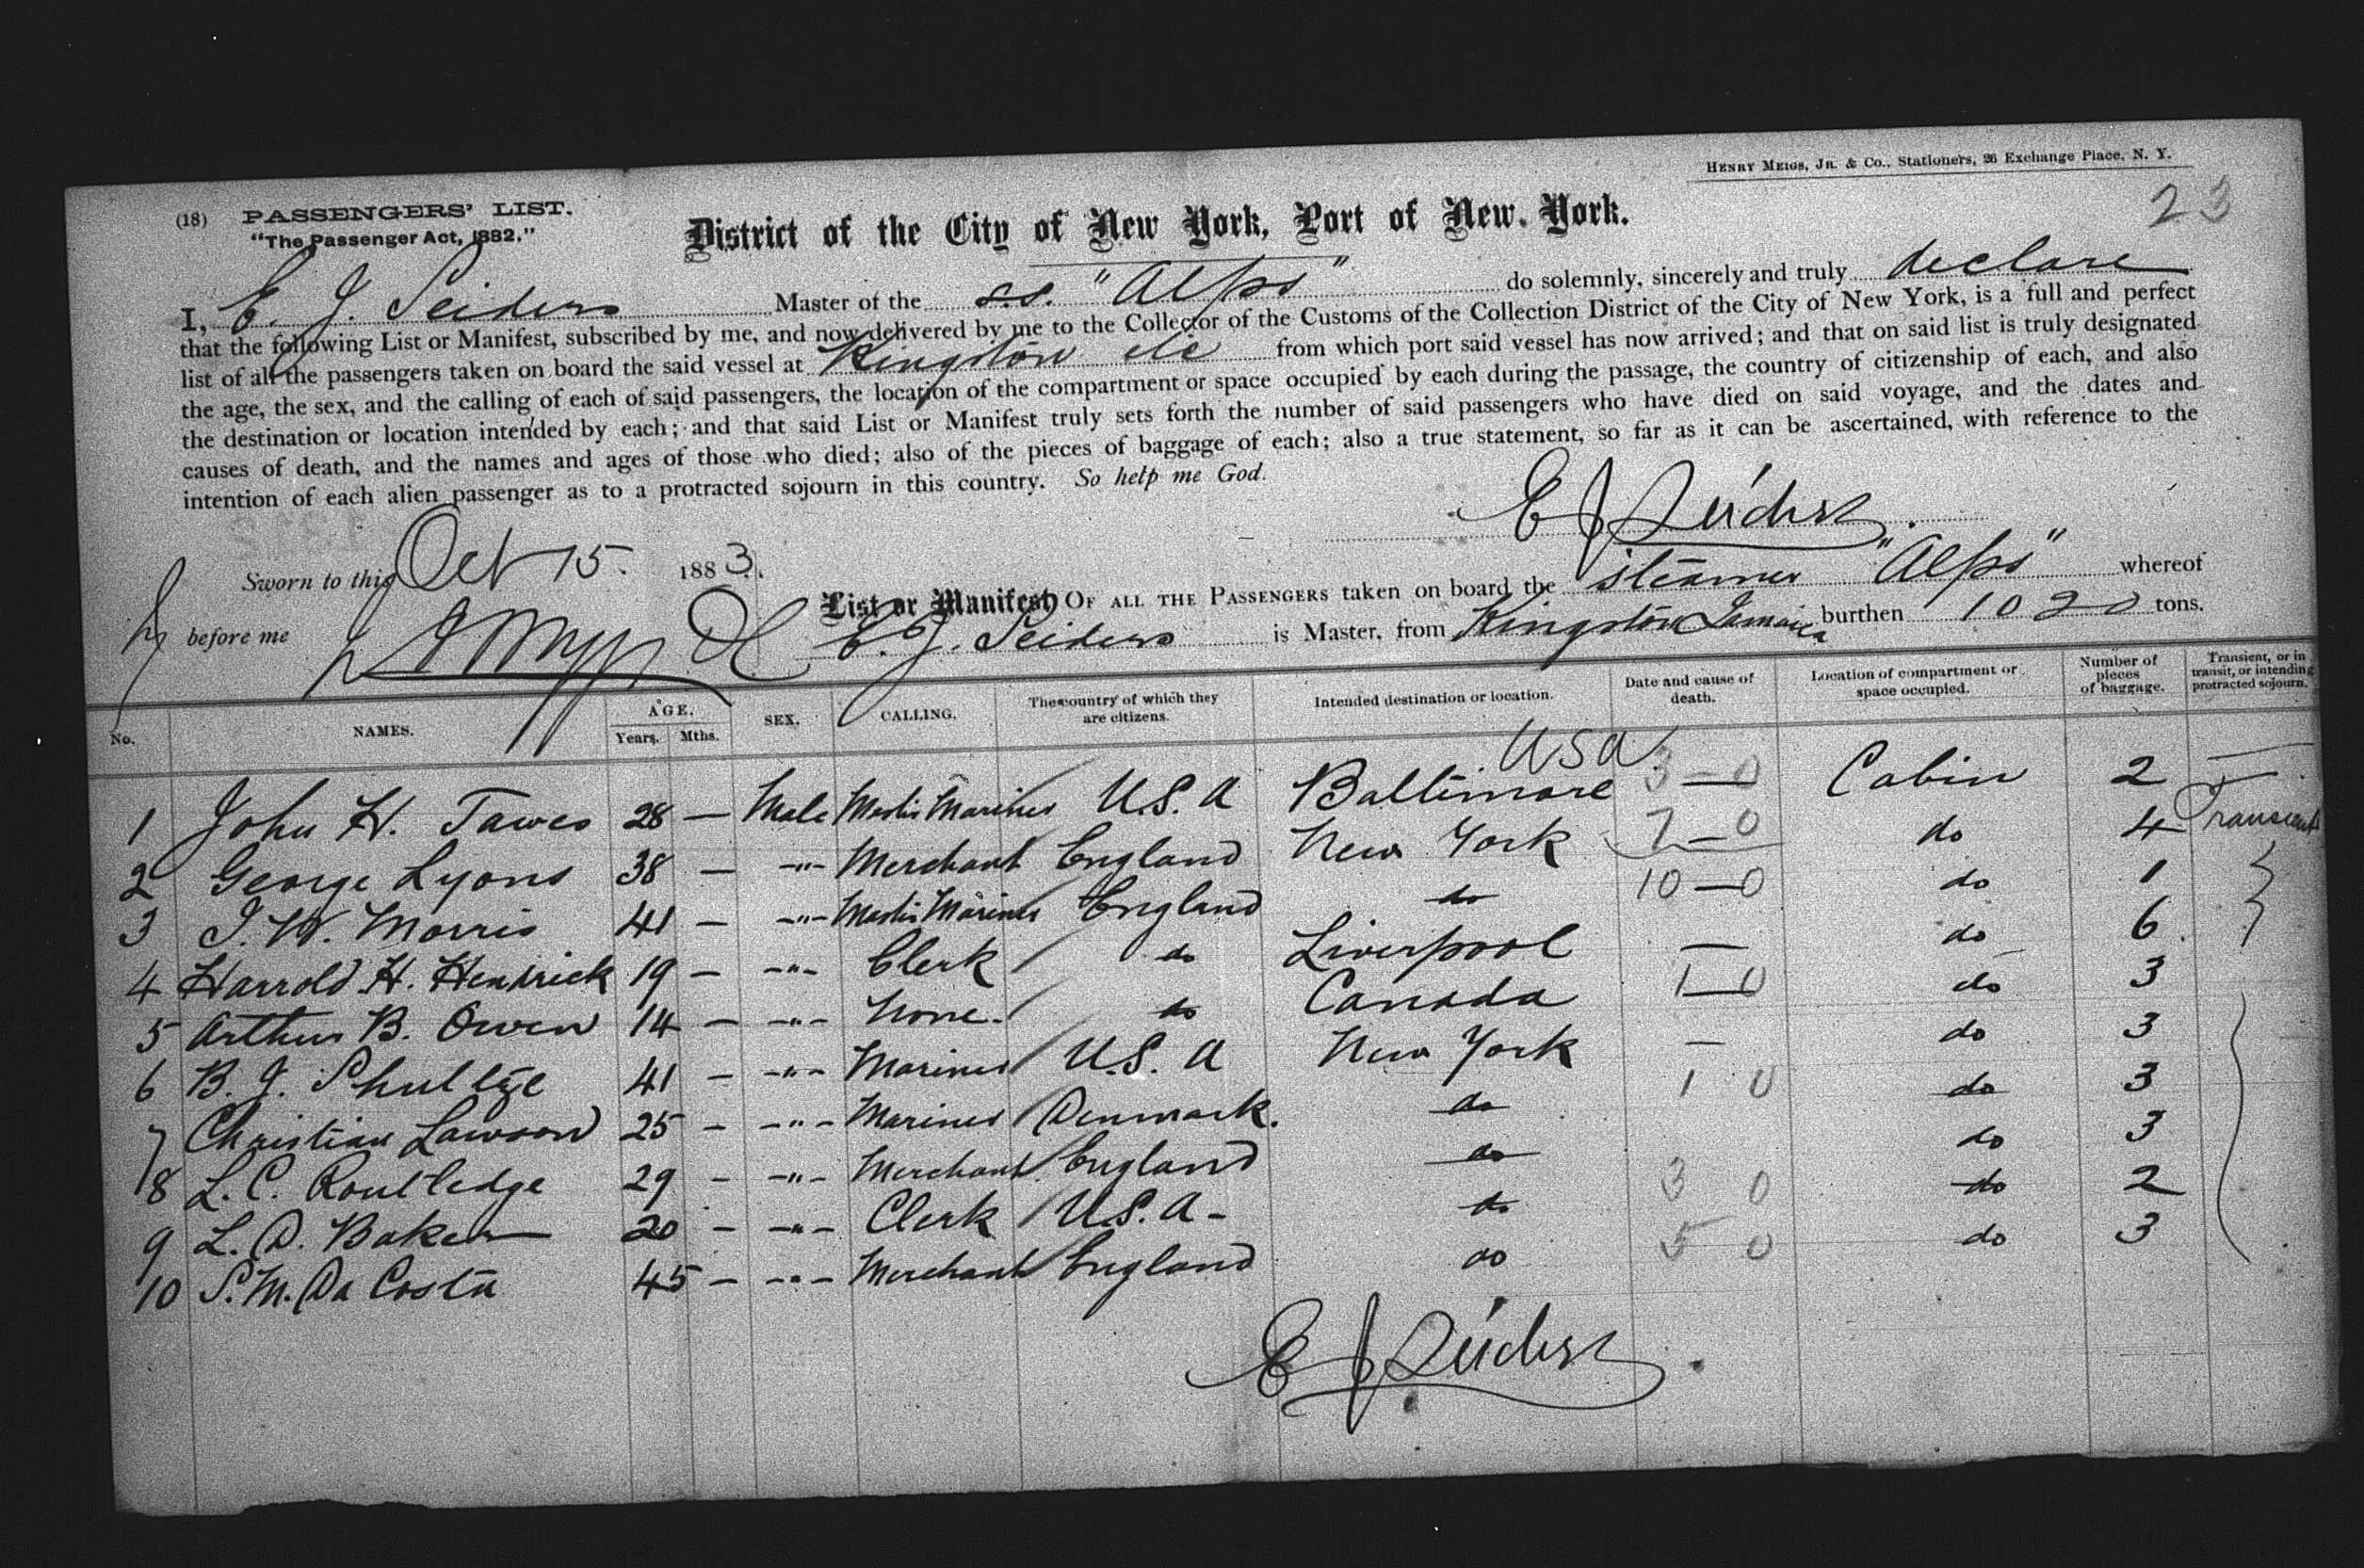 HENRY MEIGS, JR. & CO., Stationers, 26 Exchange Place, N. Y.
23
(18) PASSENGERS' LIST.
"The Passenger Act, 1882."
District of the City of New York, Port of New York.
I, E. J. Seiders Master of the s.s. "Alps" do solemnly, sincerely and truly declare
that the following List or Manifest, subscribed by me, and now delivered by me to the Collector of the Customs of the Collection District of the City of New York, is a full and perfect
list of all the passengers taken on board the said vessel at Kingston etc from which port said vessel has now arrived; and that on said list is truly designated
the age, the sex, and the calling of each of said passengers, the location of the compartment or space occupied by each during the passage, the country of citizenship of each, and also
the destination or location intended by each; and that said List or Manifest truly sets forth the number of said passengers who have died on said voyage, and the dates and
causes of death, and the names and ages of those who died; also of the pieces of baggage of each; also a true statement, so far as it can be ascertained, with reference to the
intention of each alien passenger as to a protracted sojourn in this country. So help me God.
E J Seiders
Sworn to this Oct 15. 1883.
before me
List or Manifest OF ALL THE PASSENGERS taken on board the steamer "Alps" whereof
E. J. Seiders is Master, from Kingston Jamaica burthen 1020 tons.
No. NAMES. AGE. Years. Mths. SEX. CALLING. The country of which they are citizens. Intended destination or location. Date and cause of death. Location of compartment or space occupied. Number of pieces of baggage. Transient, or in transit, or intending protracted sojourn.
USA
1 John H. Tawes 28 — Male Mastr Mariner U.S.A Baltimore 3—0 Cabin 2 —
2 George Lyons 38 — -"- Merchant England New York 7—0 do 4 Transient
3 J. W. Morris 41 — -"- Mastr Mariner England do 10—0 do 1
4 Harrold H. Hendrick 19 — -"- Clerk do Liverpool — do 6
5 Arthur B. Owen 14 — -"- None do Canada 1—0 do 3
6 B. J. Shultze 41 — -"- Mariner U.S.A New York — do 3
7 Christian Lawson 25 — -"- Mariner Denmark. do 1 0 do 3
8 L. C. Routledge 29 — -"- Merchant England do do 3
9 L. D. Baker 20 — -"- Clerk U.S.A- do 3 0 do 2
10 S. M. Da Costa 45 — -"- Merchant England do 5 0 do 3
E J Seiders